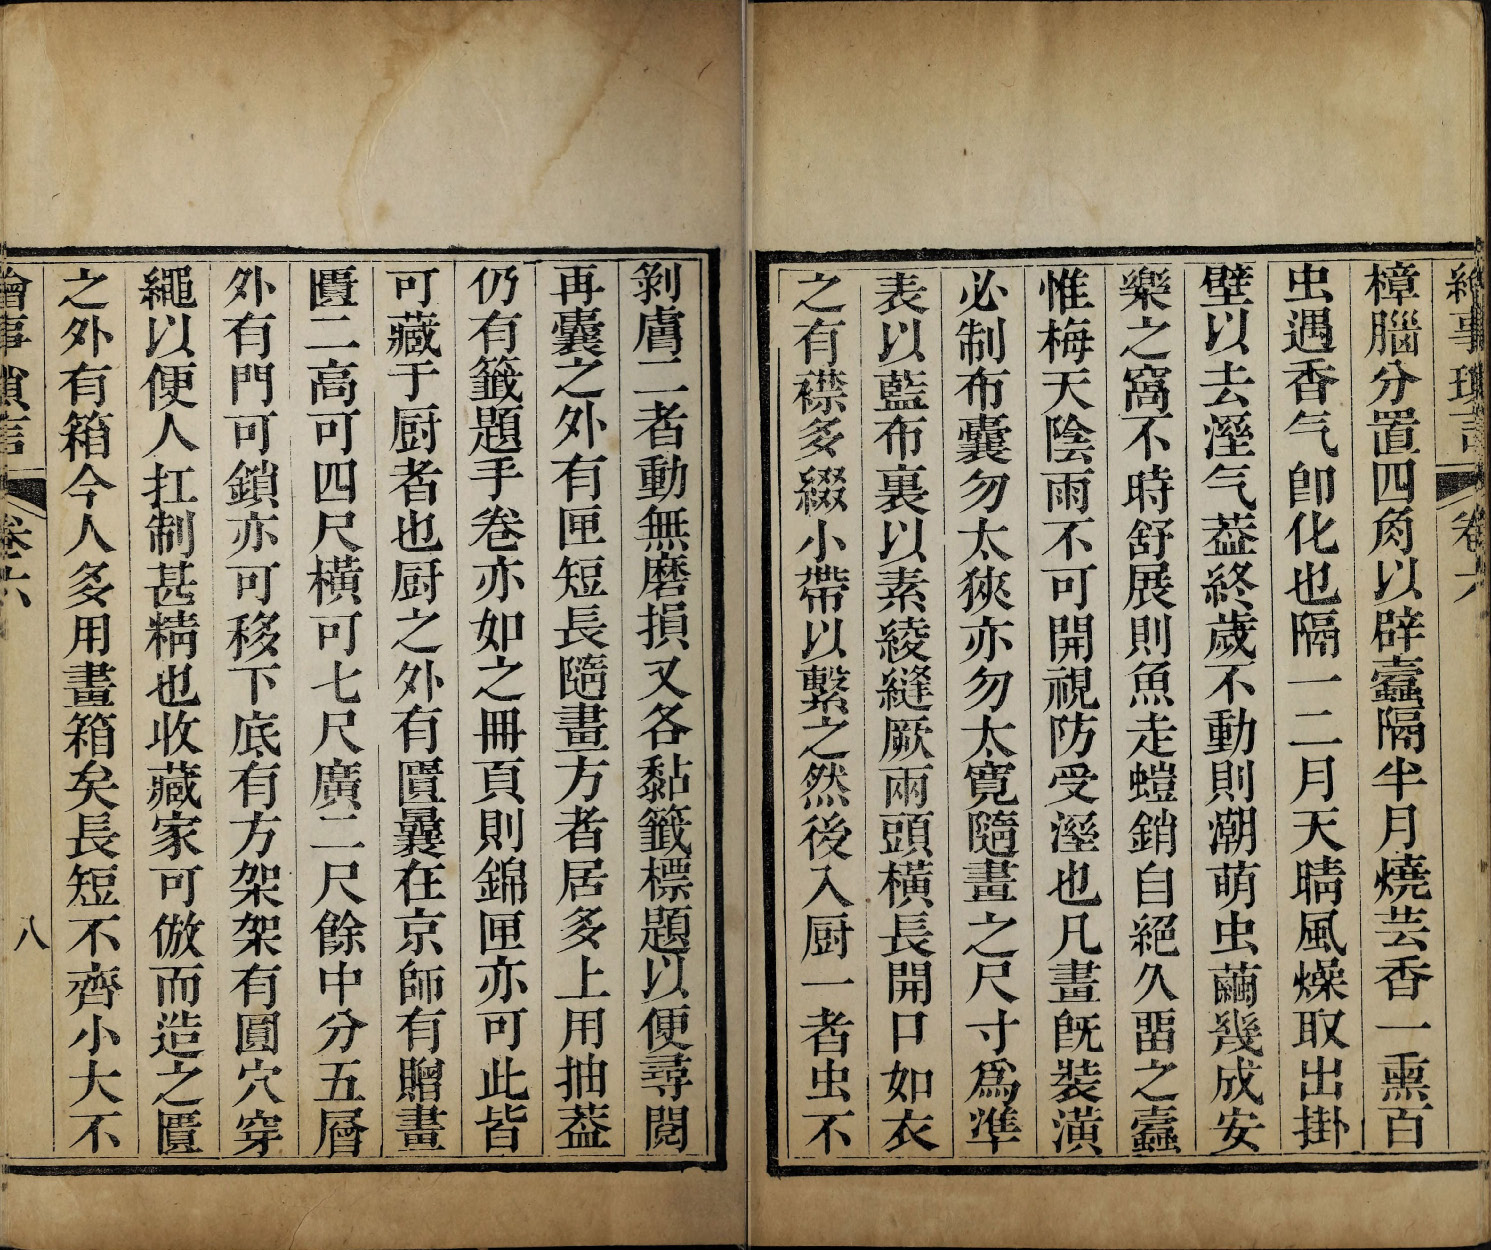 繪事瑣言 卷六
樟腦分置四角以辟蠧隔半月燒芸香一熏百
虫遇香气卽化也隔一二月天晴風燥取出掛
壁以去溼气葢終歲不動則潮萌虫繭幾成安
樂之窩不時舒展則魚走螘銷自絕久畱之蠧
惟梅天陰雨不可開視防受溼也凡畫旣裝潢
必制布囊勿太狹亦勿太寬隨畫之尺寸爲準
表以藍布裏以素綾縫厥兩頭橫長開口如衣
之有襟多綴小帶以繫之然後入厨一者虫不
剝膚二者動無磨損又各黏籤標題以便尋閱
再囊之外有匣短長隨畫方者居多上用抽葢
仍有籤題手卷亦如之冊頁則錦匣亦可此皆
可藏于厨者也厨之外有匱曩在京師有贈畫
匱二高可四尺橫可七尺廣二尺餘中分五層
外有門可鎖亦可移下底有方架架有圓穴穿
繩以便人扛制甚精也收藏家可倣而造之匱
之外有箱今人多用畫箱矣長短不齊小大不
繪事瑣言 卷六 八